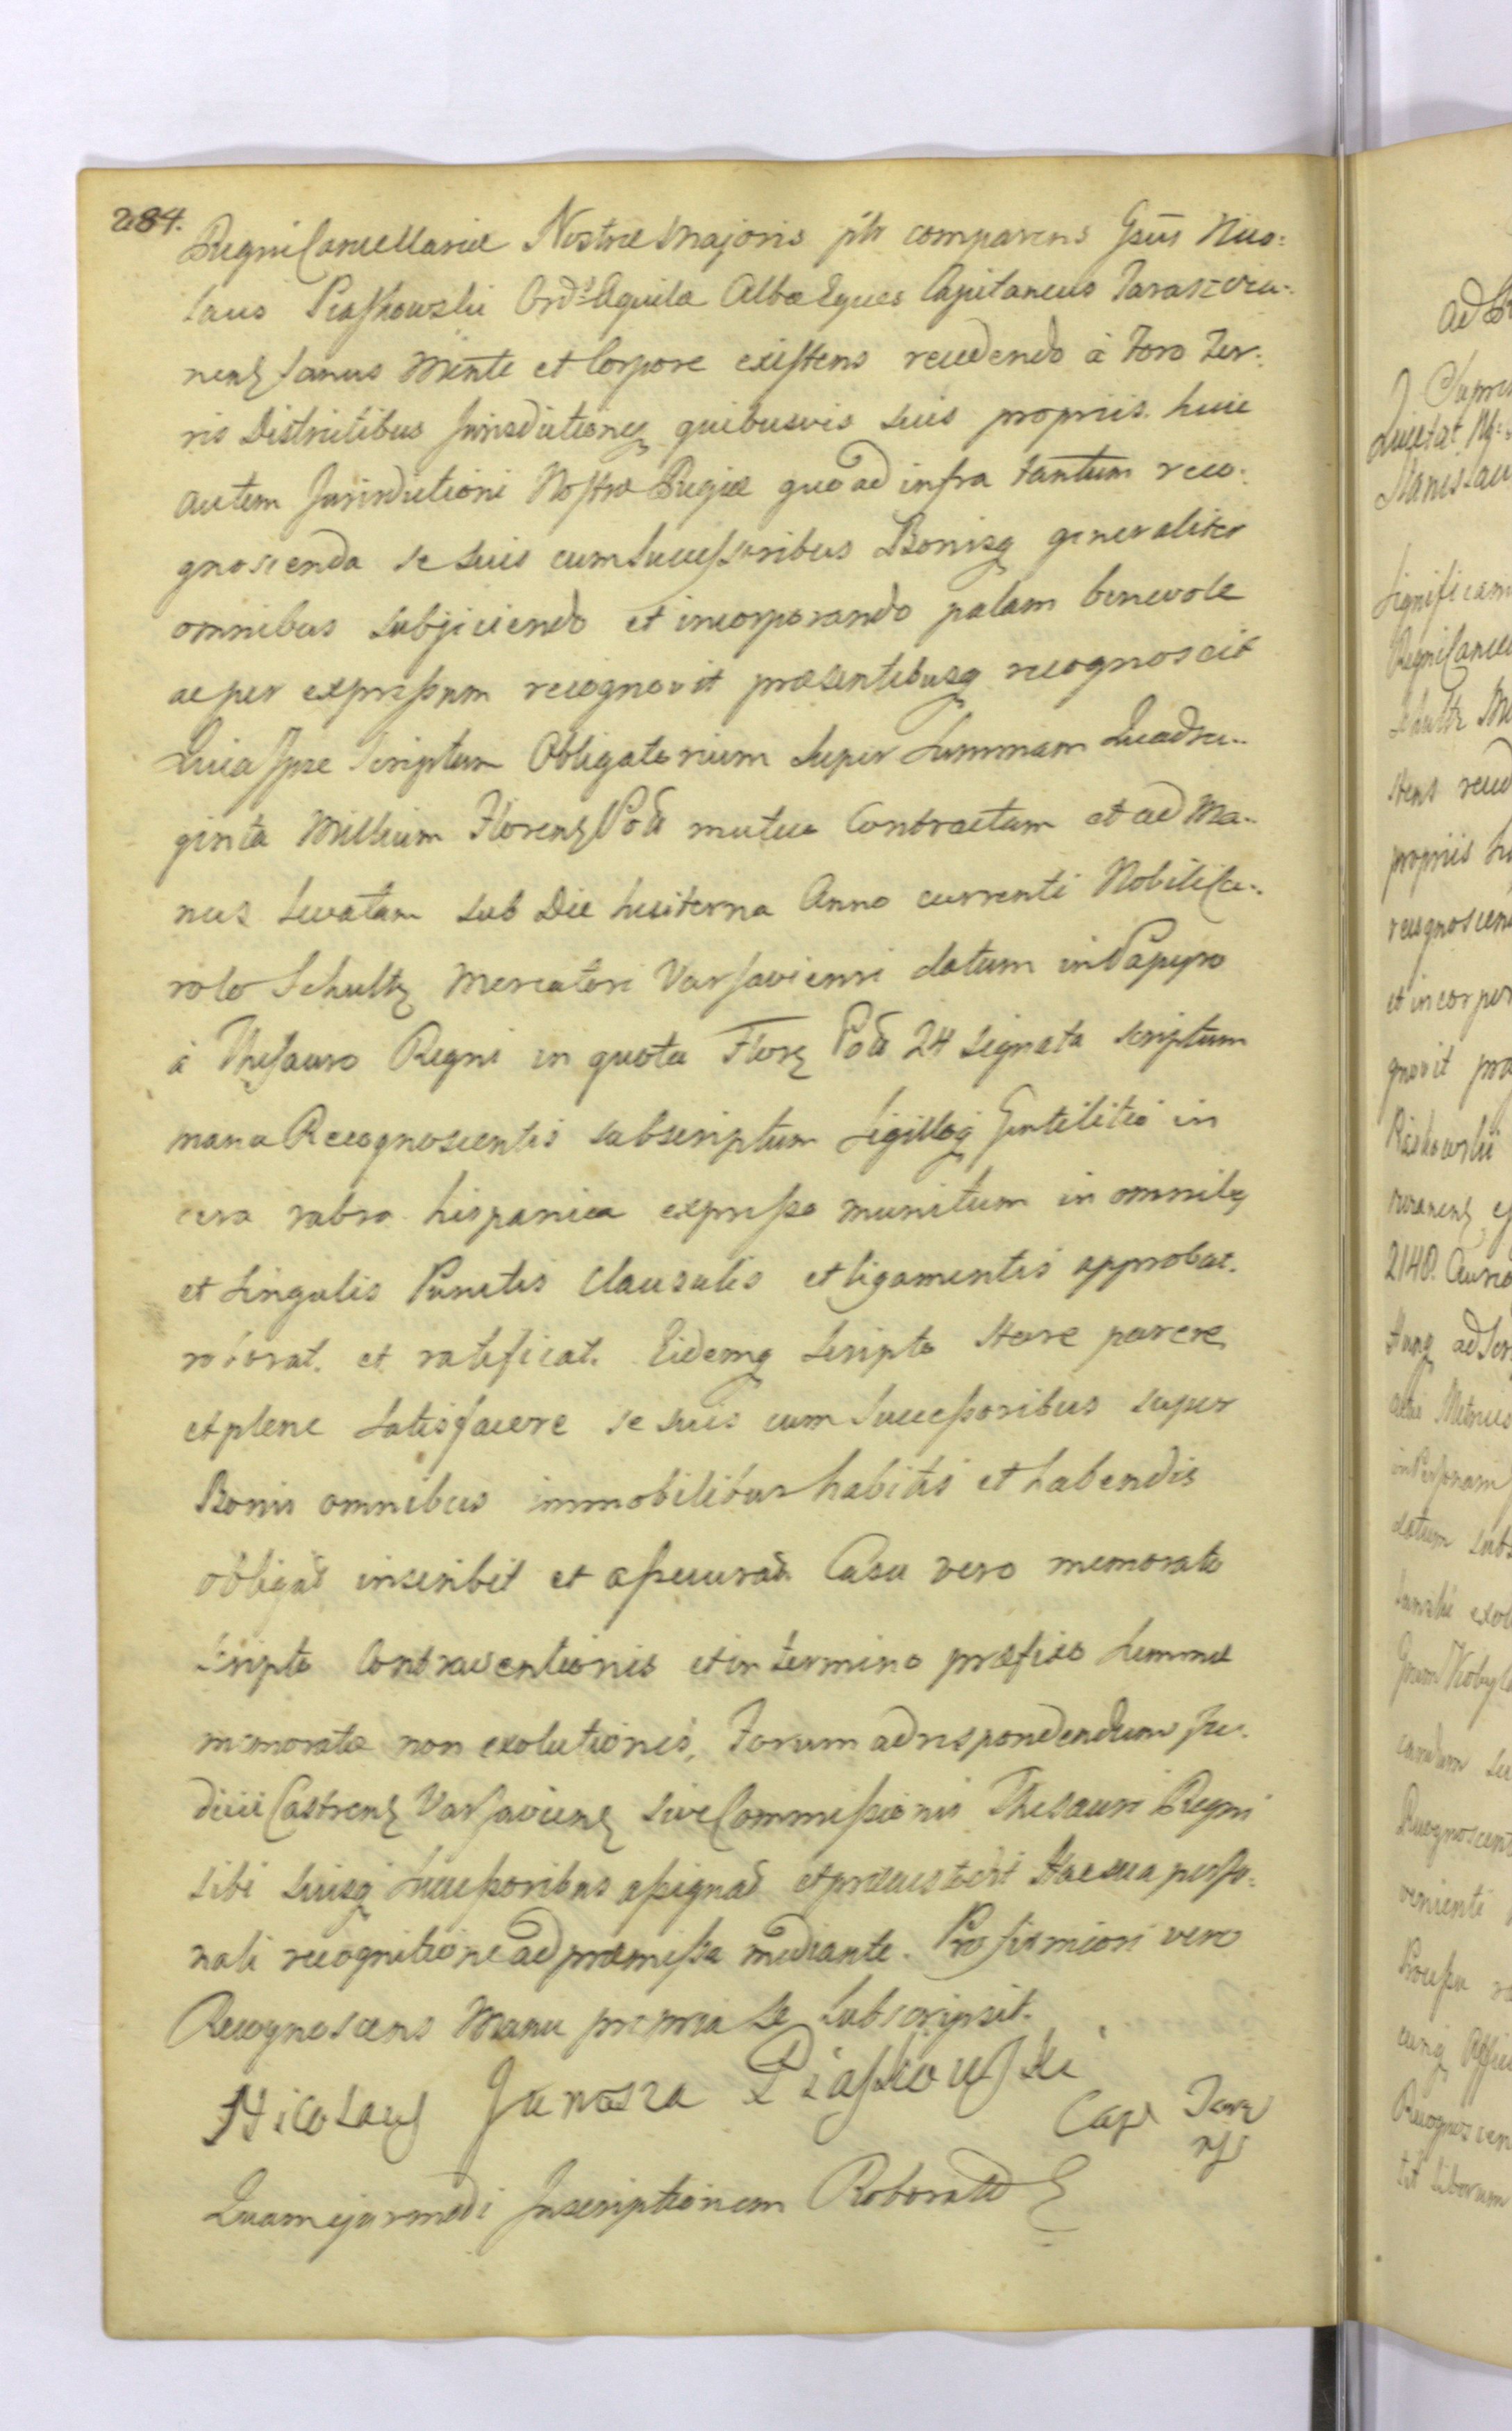 284.
Regni Cancellariæ Nostræ Majoris ptr comparens Gsus Nico=
laus Piaskowski Ord:s Aquilæ Albæ Eques Capitaneus Taraszcza=
nenȝ sanus Mente et Corpore existens recedendo à Foro Ter=
ris Districtibus Jurisdictionẹ quibusvis suis propriis. huic
autem Jurisdictioni Nostræ Regiæ quo ad infra tantum reco=
gnoscenda se suis cum Successoribus Bonisq generaliter
omnibus subjiciendo et incorporando palam benevole
ac per expressum recognovit præsentibusq recognoscit
Quia Ipse Scriptum Obligatorium super Summam Quadra=
ginta Millium Florenȝ Poll mutuo Contractam et ad Ma=
nus levatam sub Die hesterna Anno currenti Nobili Ca=
rolo Schultz Mercatori Varsaviensi datum in Papyro
à Thesauro Regni in quota Florȝ Poll 24 signata scriptum
manu Recognoscentis subscriptum Sigilloq Gentilitio in
cera rubra hispanica expresso munitum in omnibȝ
et singulis Punctis Clausulis et ligamentis approbat.
roborat. et ratificat. Eidemq Scripto stare parere
et plene satisfacere se suis cum Successoribus super
Bonis omnibus immobilibus habitis et habendis
obligat inscribit et assecurat. Casu vero memorato
Scripto Contraventionis et in termino præfixo Summæ
memoratæ non exolutionis, Forum ad respondendum Ju=
dicii Castrenȝ Varsavienȝ sive Commissionis Thesauri Regni
sibi suisq Successoribus assignat et præcustodit Hac sua perso=
nali recognitione ad præmissa mediante. Pro firmiori vero
Recognoscens Manu propria se subscripsit.
Nicolaus Junosza Piaskowski
Cap Tar
Quamejusmodi Inscriptionem Roborati
ad
Supre
Significam
Regni Cancel
Schultz
stens reced
propriis hu
recognoscen
et incorpor
gnovit præ
Piaskowski
2140.
datum subs
Recognoscent
venienti
Recognoscen
tit librorum